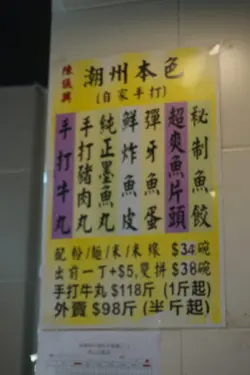 陳儀興
潮州本色
(自家手打)
秘制魚餃
超爽魚片頭
彈牙魚蛋
鮮炸魚皮
純正墨魚丸
手打豬肉丸
手打牛丸
配粉/麵/米/米線 $34碗
出前一丁+$5,雙拼 $38碗
手打牛丸 $118斤 (1斤起)
外賣 $98斤 (半斤起)